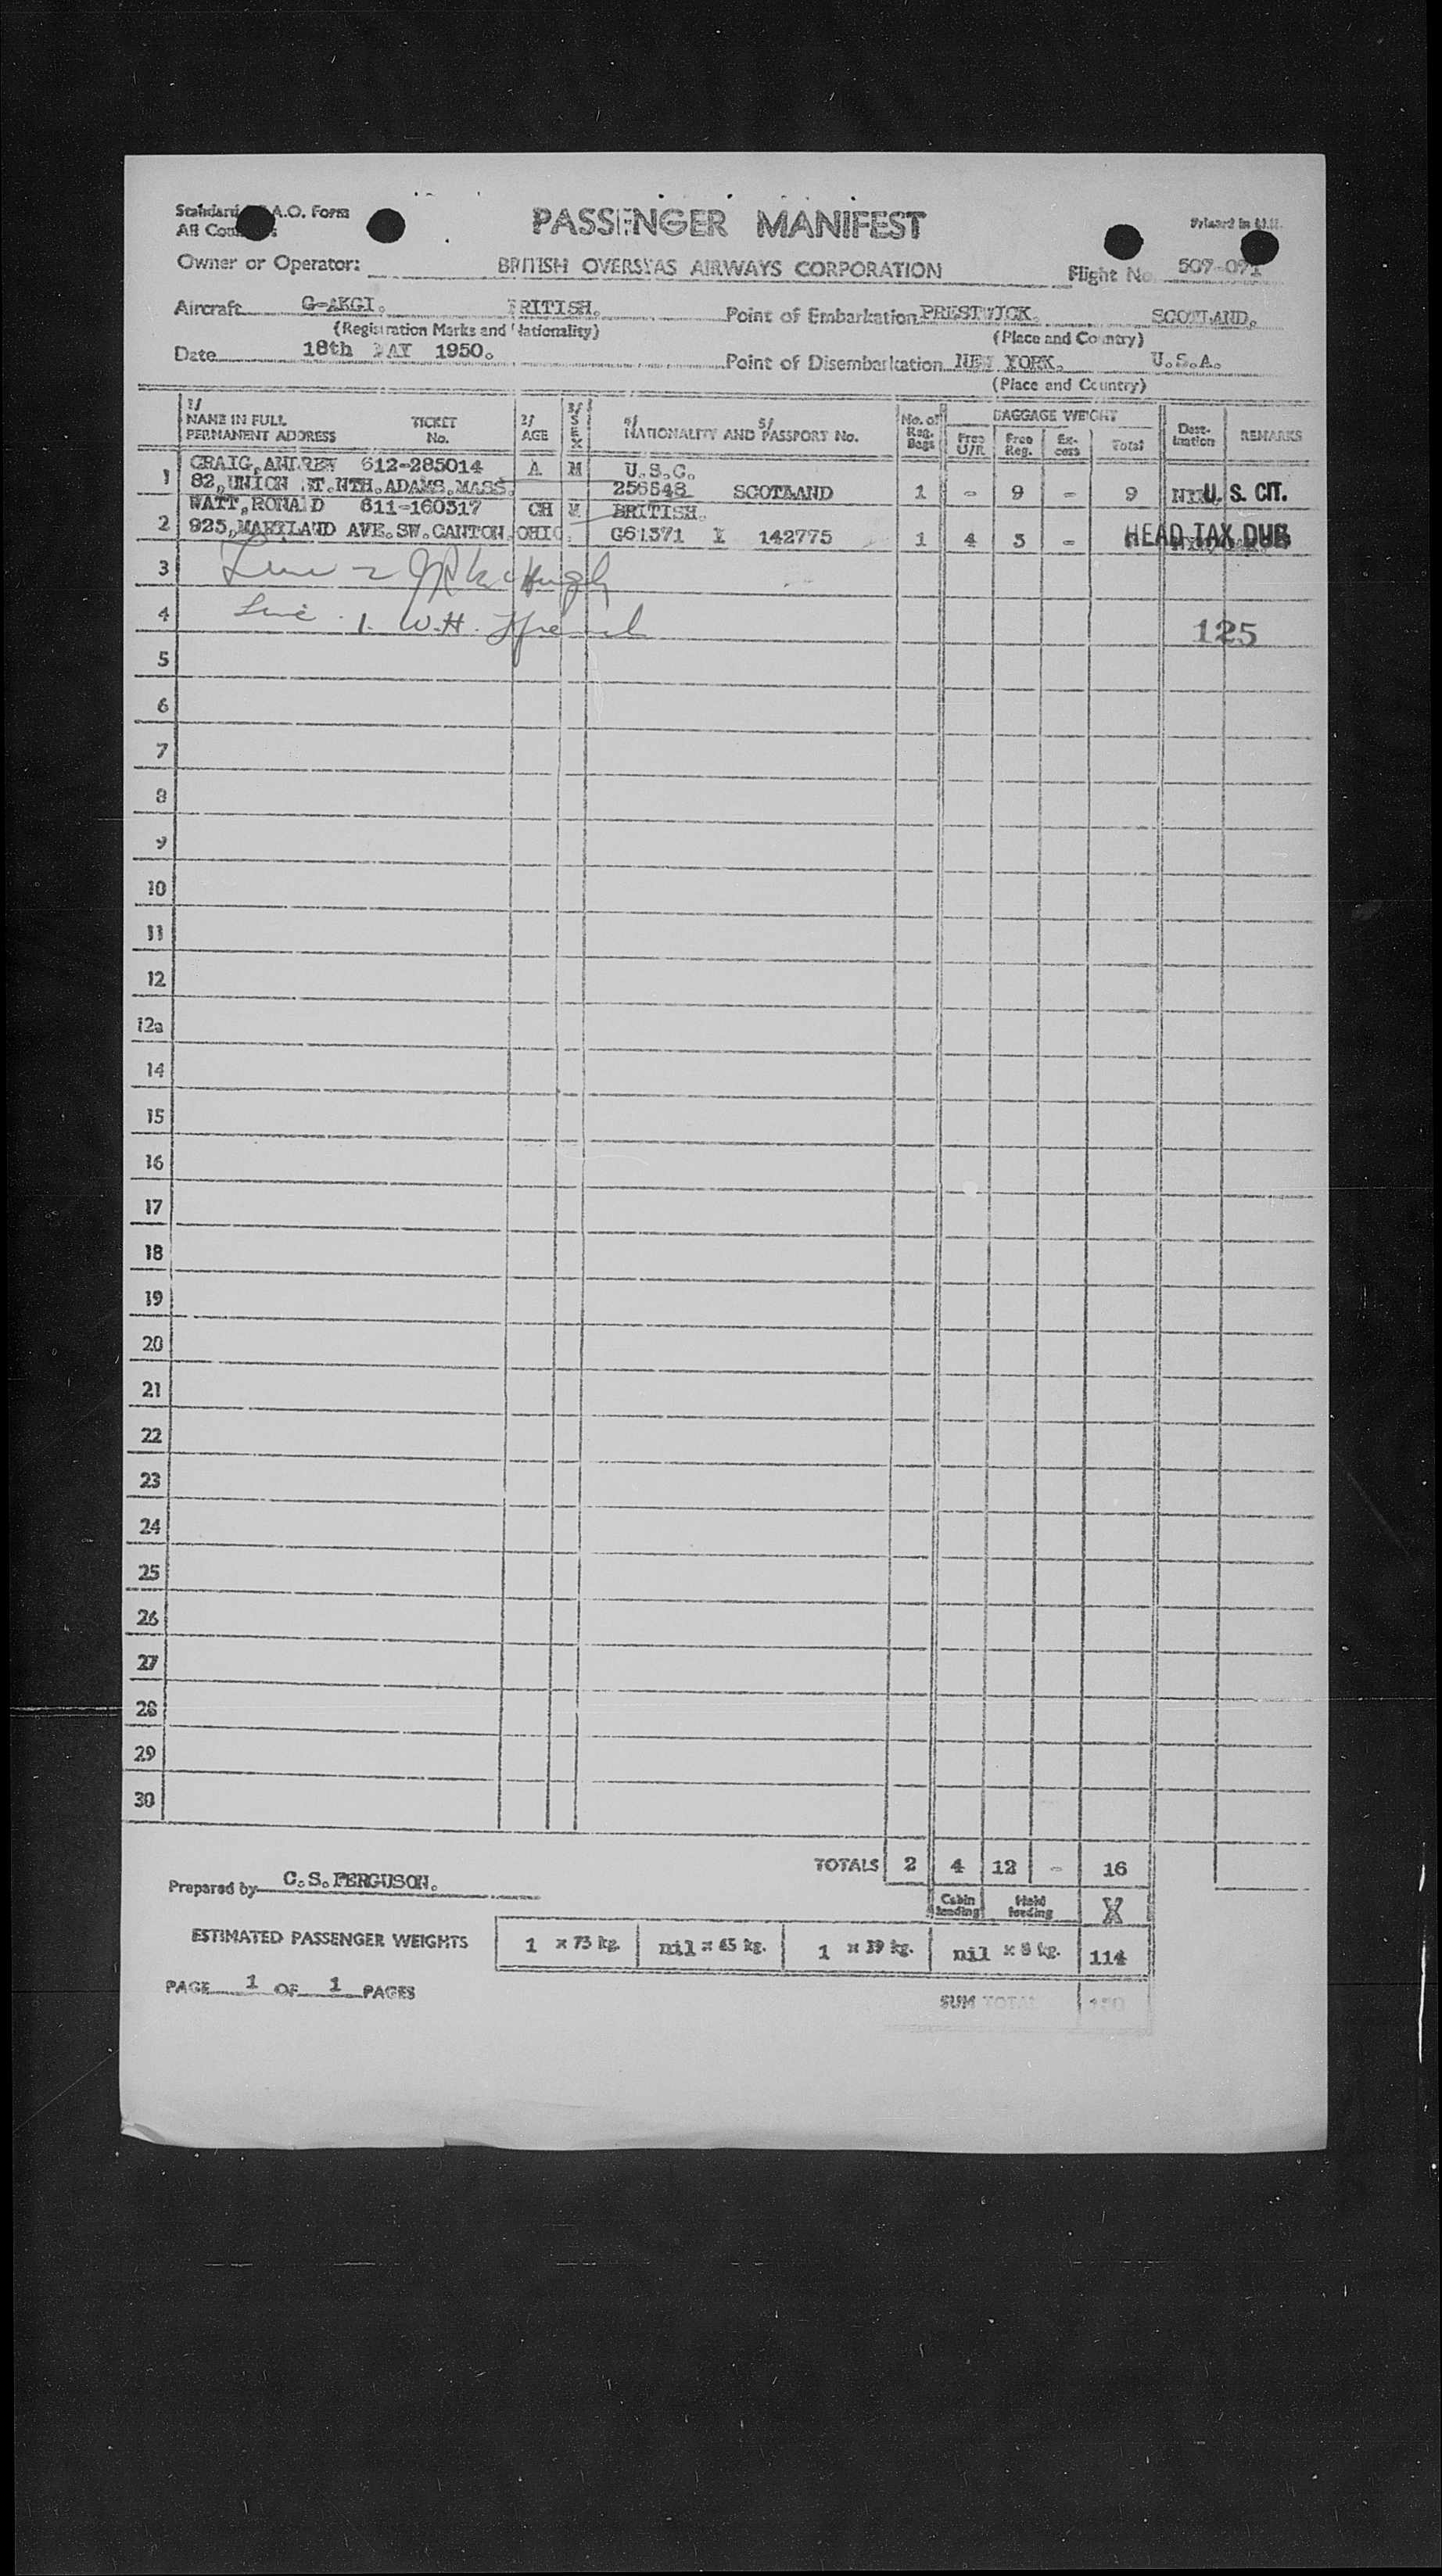 Standard A.O. Form
All
PASSENGER MANIFEST
Printed in
Owner or Operator: BRITISH OVERSEAS AIRWAYS CORPORATION Flight No. 507-071
Aircraft G-AKGI. BRITISH. Point of Embarkation PRESTWICK. SCOTLAND.
(Registration Marks and Nationality) (Place and Country)
Date 18th MAY 1950. Point of Disembarkation NEW YORK. U.S.A.
(Place and Country)
1/ NAME IN FULL PERMANENT ADDRESS TICKET No. 2/ AGE 3/ SEX 4/ NATIONALITY AND 5/ PASSPORT No. No. of Reg. Bags BAGGAGE WEIGHT Free U/R Free Reg. Ex-cess Total Dest-ination REMARKS
CRAIG,ANDREW 612-285014 A M U.S.C.
1 82,UNION ST.NTH.ADAMS.MASS. 256548 SCOTLAND 1 - 9 - 9 U. S. CIT.
WATT,RONALD 611-160317 CH M BRITISH.
2 925,MARYLAND AVE.SW.CANTON.OHIO. G61371 I 142775 1 4 3 - HEAD TAX DUE
3
4 1. W.H. 125
5
6
7
8
9
10
11
12
12a
14
15
16
17
18
19
20
21
22
23
24
25
26
27
28
29
30
TOTALS 2 4 12 - 16
Prepared by C.S.FERGUSON.
Cabin loading Hold loading X
ESTIMATED PASSENGER WEIGHTS 1 x 73 kg. nil x 65 kg. 1 x 39 kg. nil x 8 kg. 114
PAGE 1 OF 1 PAGES
SUM TOTAL 130